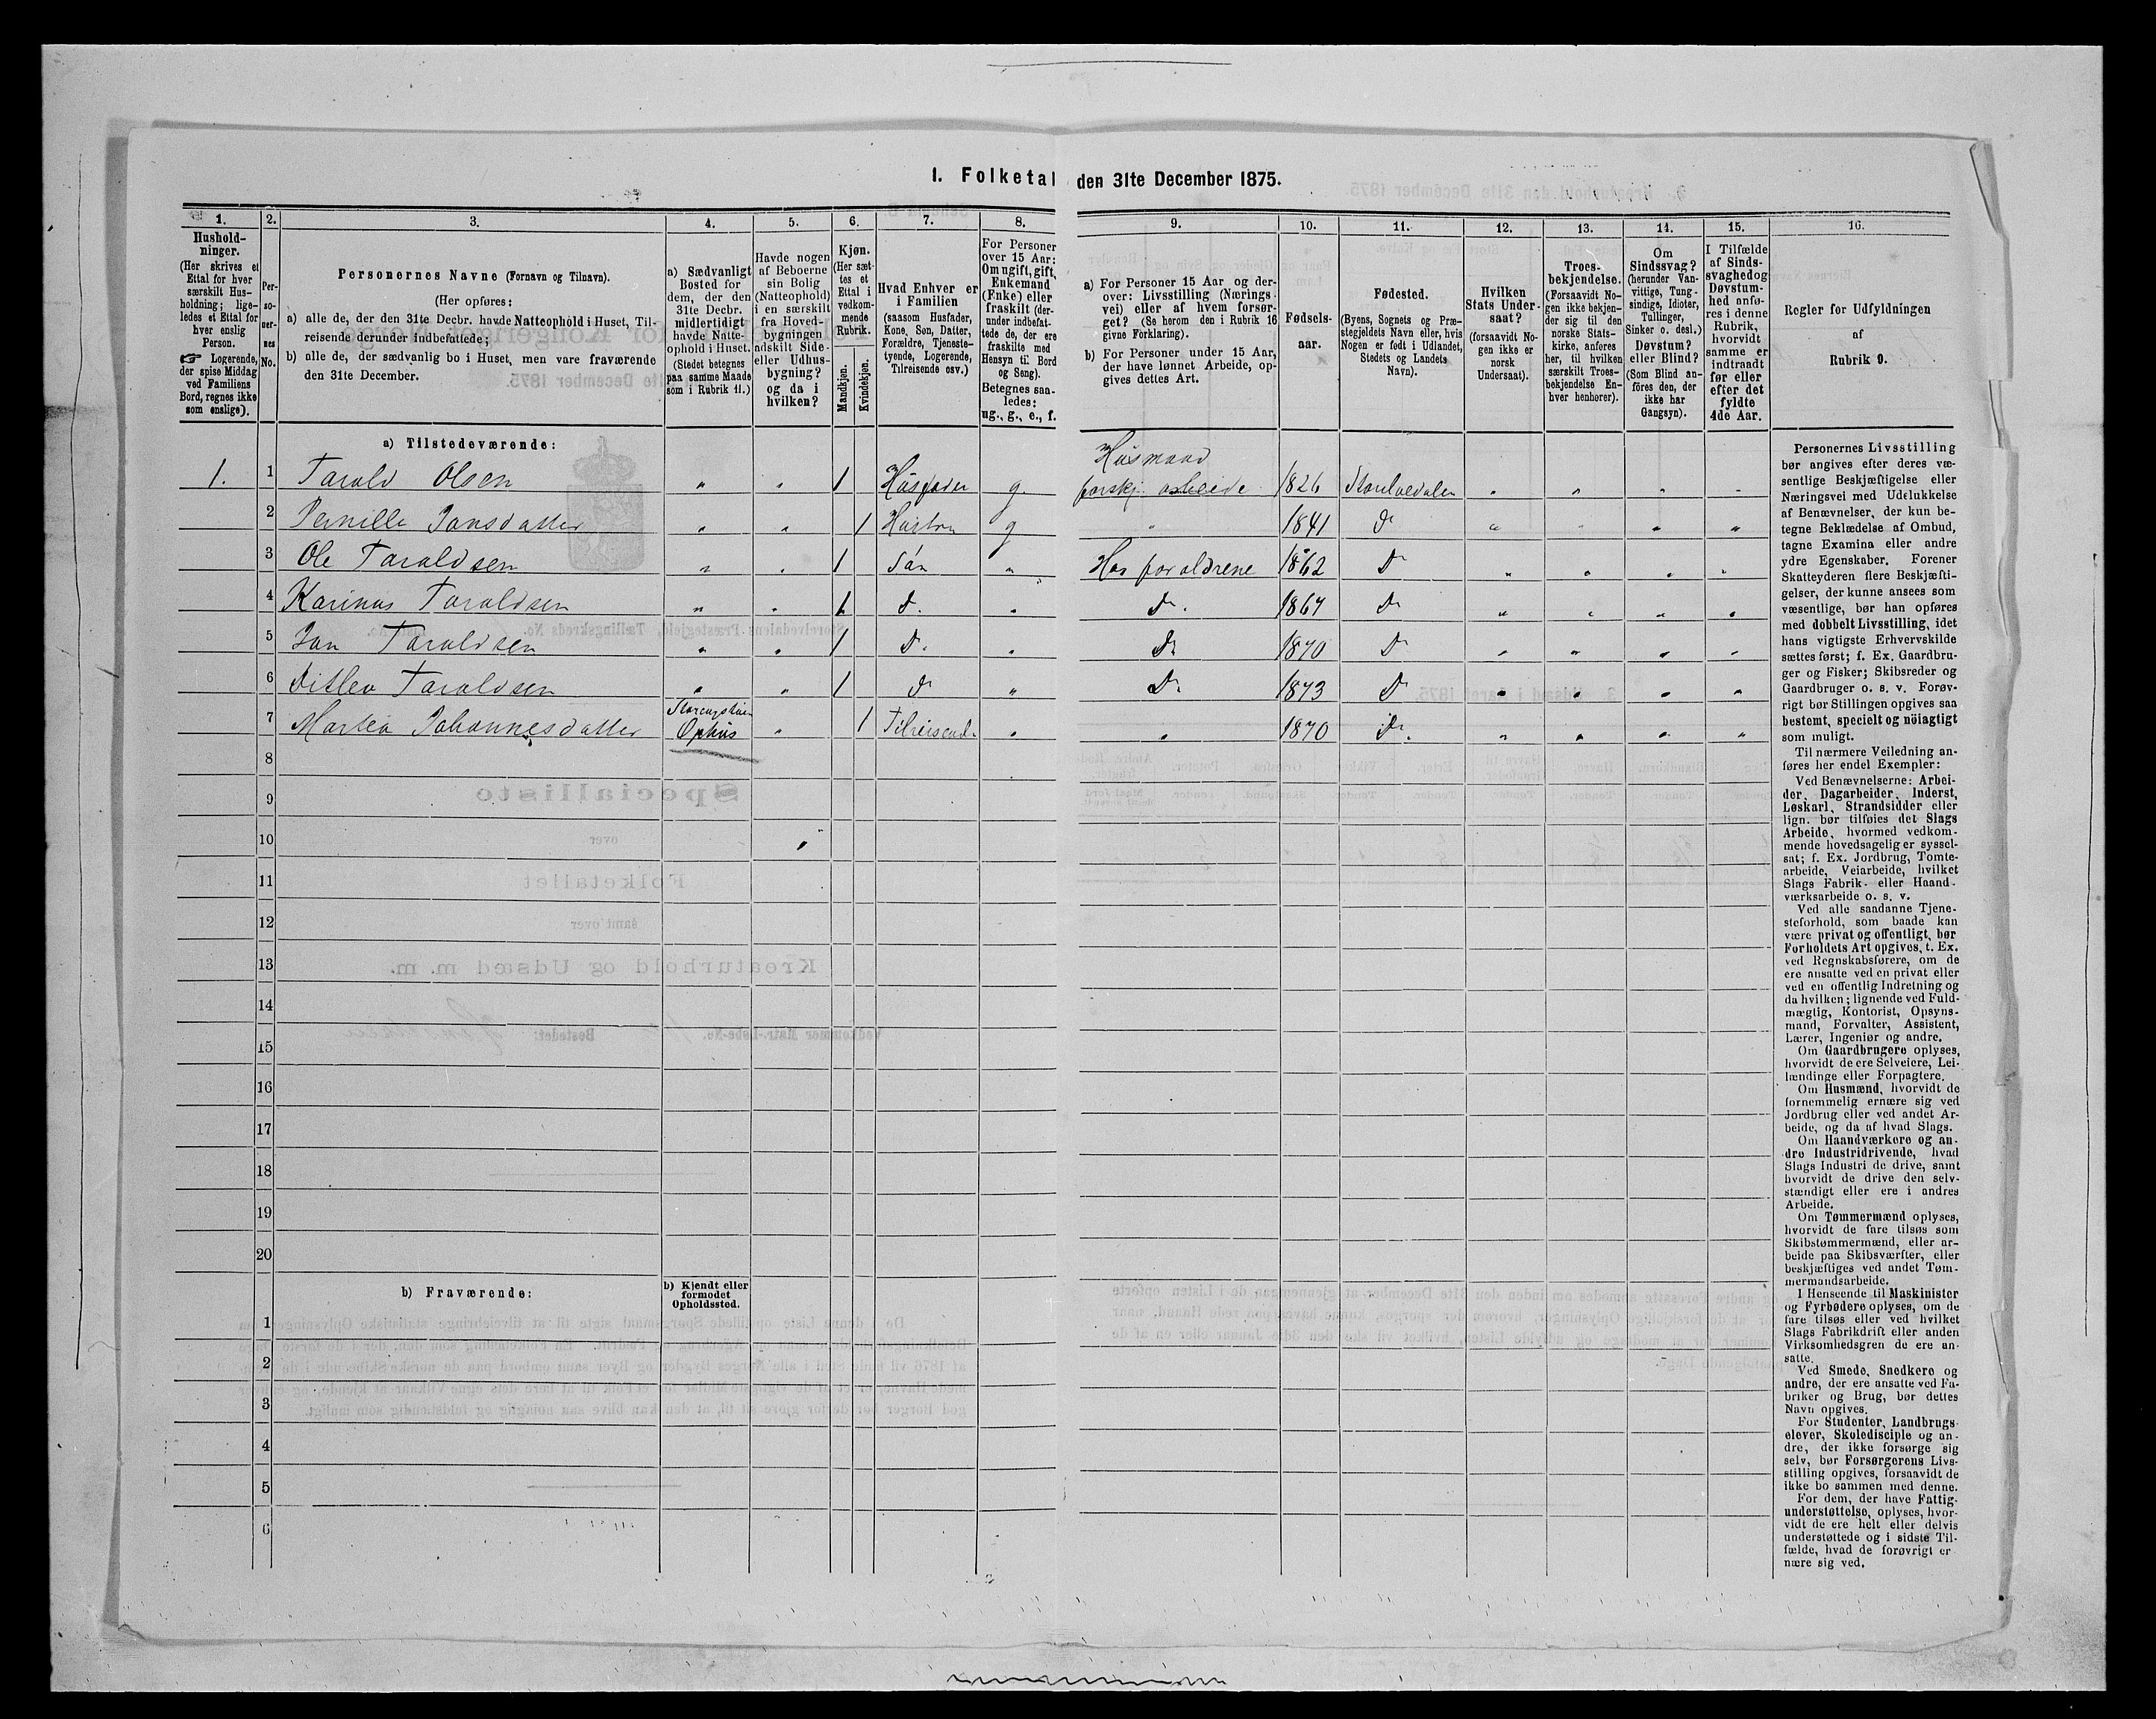 1. Folketal den 31te December 1875.
1. 2. 3. 4. 5. 6. 7. 8. 9. 10. 11. 12. 13. 14. 15. 16.
Hushold-
ninger.
(Her skrives et
Ettal for hver
særskilt Hus-
holdning; lige-
ledes et Ettal for
hver enslig
Person.
☞ Logerende,
der spise Middag
ved Familiens
Bord, regnes ikke
som enslige).
Per-
so-
ner-
nes
No.
Personernes Navne (Fornavn og Tilnavn).
(Her opføres:
a) alle de, der den 31te Decbr. havde Natteophold i Huset, Til-
reisende derunder indbefattede;
b) alle de, der sædvanlig bo i Huset, men vare fraværende
den 31te December.
a) Sædvanligt
Bosted for
dem, der den
31te Decbr.
midlertidigt
havde Natte-
ophold i Huset.
(Stedet betegnes
paa samme Maade
som i Rubrik 11.)
Havde nogen
af Beboerne
sin Bolig
(Natteophold)
i en særskilt
fra Hoved-
bygningen
adskilt Side-
eller Udhus-
bygning?
og da i
hvilken?
Kjøn.
(Her sæt-
tes et
Ettal i
vedkom-
mende
Rubrik.
Mandkjøn.
Kvindekjøn.
Hvad Enhver er
i Familien
(saasom Husfader,
Kone, Søn, Datter,
Forældre, Tjeneste-
tyende, Logerende,
Tilreisende osv.)
For Personer
over 15 Aar:
Om ugift, gift,
Enkemand
(Enke) eller
fraskilt (der-
under indbefat-
tede de, der ere
fraskilte med
Hensyn til Bord
og Seng).
Betegnes saa-
ledes:
ug., g., e., f.
a) For Personer 15 Aar og der-
over: Livsstilling (Nærings-
vei) eller af hvem forsør-
get? (Se herom den i Rubrik 16
givne Forklaring).
b) For Personer under 15 Aar,
der have lønnet Arbeide, op-
gives dettes Art.
Fødsels-
aar.
Fødested.
(Byens, Sognets og Præ-
stegjeldets Navn eller, hvis
Nogen er født i Udlandet,
Stedets og Landets
Navn).
Hvilken
Stats Under-
saat?
(forsaavidt No-
gen ikke er
norsk
Undersaat).
Troes-
bekjendelse.
(Forsaavidt No-
gen ikke bekjen-
der sig til den
norske Stats-
kirke, anføres
her, til hvilken
særskilt Troes-
bekjendelse En-
hver henhører).
Om
Sindssvag?
(herunder Van-
vittige, Tung-
sindige, Idioter,
Tullinger,
Sinker o. desl.)
Døvstum?
eller Blind?
(Som Blind an-
føres den, der
ikke har
Gangsyn).
I Tilfælde
af Sinds-
svaghed og
Døvstum-
hed anfø-
res i denne
Rubrik,
hvorvidt
samme er
indtraadt
før eller
efter det
fyldte
4de Aar.
Regler for Udfyldningen
af
Rubrik 9.
a) Tilstedeværende:
Husmand
1. 1 Tarald Olsen " " 1 Husfader g. forskj. arbeide 1826 Storelvedalen " " " "
2 Pernille Jonsdatter " " 1 Hustru g " 1841 Do " " " "
3 Ole Taraldsen " " 1 Søn " Hos forældrene 1862 Do " " " "
4 Karinus Taraldsen " " 1 Do. " Do. 1867 Do " " " "
5 Jon Taraldsen " " 1 Do. " Do 1870 Do " " " "
6 Ditlev Taraldsen " " 1 Do " Do. 1873 Do " " " "
7 Martea Johannesdatter Ophus " 1 Tilreisende " " 1870 Do. " " " "
8
9
10
11
12
13
14
15
16
17
18
19
20
b) Fraværende:
b) Kjendt eller
formodet
Opholdssted.
1
2
3
4
5
6
Personernes Livsstilling
bør angives efter deres væ-
sentlige Beskjæftigelse eller
Næringsvei med Udelukkelse
af Benævnelser, der kun be-
tegne Beklædelse af Ombud,
tagne Examina eller andre
ydre Egenskaber. Forener
Skatteyderen flere Beskjæfti-
gelser, der kunne ansees som
væsentlige, bør han opføres
med dobbelt Livsstilling, idet
hans vigtigste Erhvervskilde
sættes først; f. Ex. Gaardbru-
ger og Fisker; Skibsreder og
Gaardbruger o. s. v. Forøv-
rigt bør Stillingen opgives saa
bestemt, specielt og nöiagtigt
som muligt.
Til nærmere Veiledning an-
føres her endel Exempler:
Ved Benævnelserne: Arbei-
der, Dagarbeider, Inderst,
Løskarl, Strandsidder eller
lign. bør tilføies det Slags
Arbeide, hvormed vedkom-
mende hovedsagelig er syssel-
sat; f. Ex. Jordbrug, Tomte-
arbeide, Veiarbeide, hvilket
Slags Fabrik- eller Haand-
værksarbeide o. s. v.
Ved alle saadanne Tjene-
steforhold, som baade kan
være privat og offentligt, bør
Forholdets Art opgives, t. Ex.
ved Regnskabsførere, om de
ere ansatte ved en privat eller
ved en offentlig Indretning og
da hvilken; lignende ved Fuld-
mægtig, Kontorist, Opsyns-
mand, Forvalter, Assistent,
Lærer, Ingeniør og andre.
Om Gaardbrugere oplyses,
hvorvidt de ere Selveiere, Lei-
lændinge eller Forpagtere.
Om Husmænd, hvorvidt de
fornemmelig ernære sig ved
Jordbrug eller ved andet Ar-
beide, og da af hvad Slags.
Om Haandværkere og an-
dre Industridrivende, hvad
Slags Industri de drive, samt
hvorvidt de drive den selv-
stændigt eller ere i andres
Arbeide.
Om Tømmermænd oplyses,
hvorvidt de fare tilsøs som
Skibstømmermænd, eller ar-
beide paa Skibsværfter, eller
beskjæftiges ved andet Tøm-
mermandsarbeide.
I Henseende til Maskinister
og Fyrbødere oplyses, om de
fare tilsøs eller ved hvilket
Slags Fabrikdrift eller anden
Virksomhedsgren de ere an-
satte.
Ved Smede, Snedkere og
andre, der ere ansatte ved Fa-
briker og Brug, bør dettes
Navn opgives.
For Studenter, Landbrugs-
elever, Skoledisciple og an-
dre, der ikke forsørge sig
selv, bør Forsørgerens Livs-
stilling opgives, forsaavidt de
ikke bo sammen med denne.
For dem, der have Fattig-
understøttelse, oplyses, hvor-
vidt de ere helt eller delvis
understøttede og i sidste Til-
fælde, hvad de forøvrigt er-
nære sig ved.